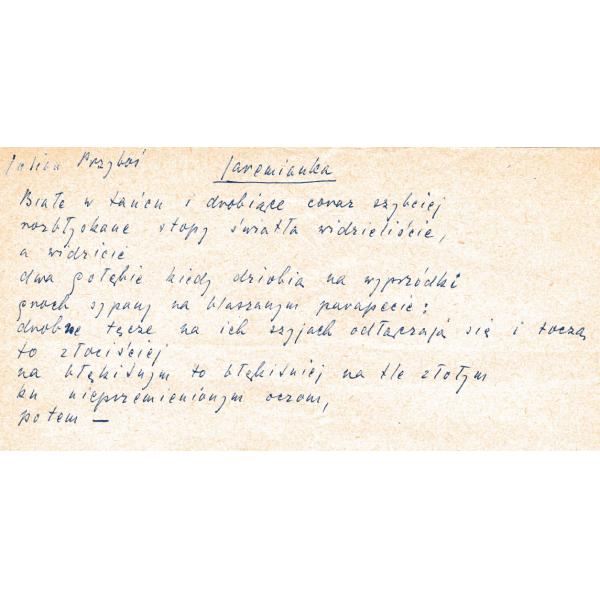 Julian Przyboś
Jaremianka
Białe w tańcu i drobiące coraz szybciej
rozbłyskane stopy światła widzieliście,
a widzicie
dwa gołębie kiedy dziobią na wyprzódki
groch sypany na blaszanym parapecie:
drobne tęcze na ich szyjach odłączają się i toczą
to złociściej
na błękitnym to błękitniej na tle złotym
ku nieprzemienionym oczom,
potem —